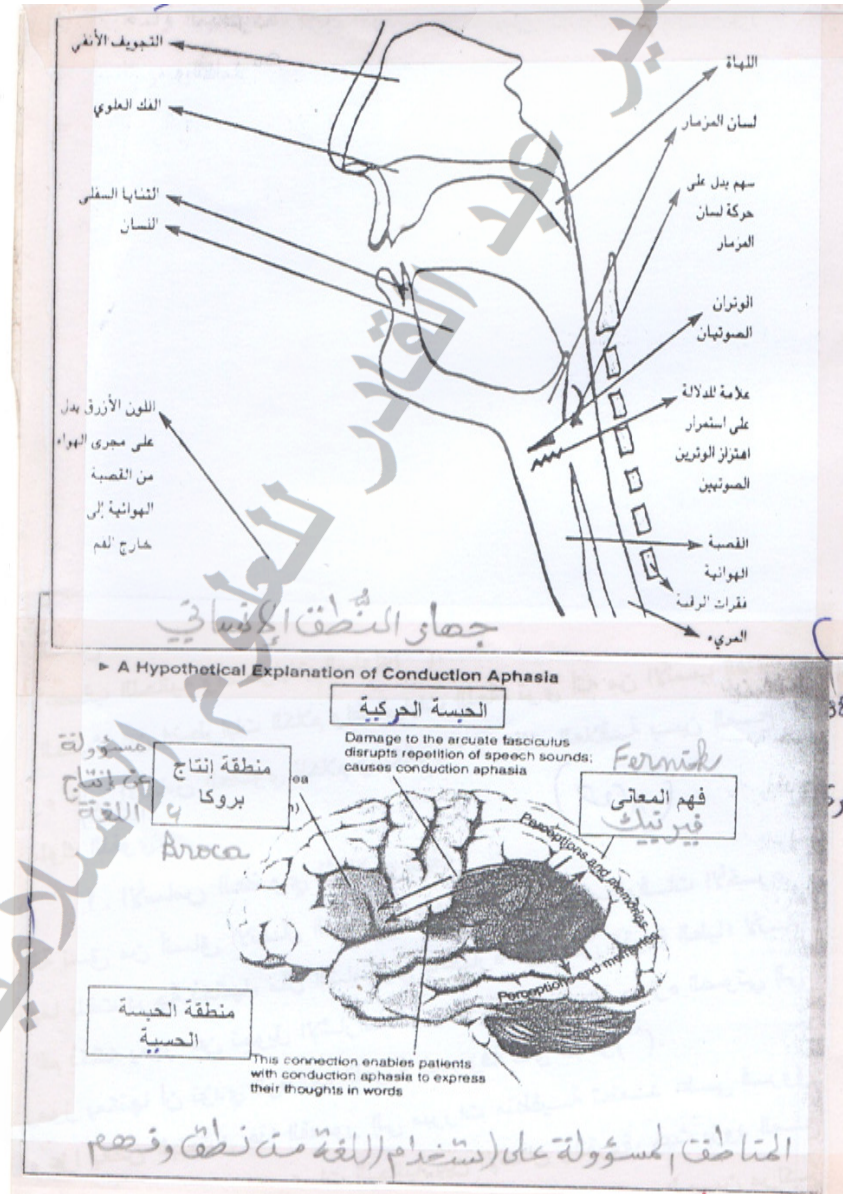 التجويف الأنفي
الفك العلوي
الثنايا السفلى
اللسان
اللون الأزرق يدل
على مجرى الهواء
من القصبة
الهوائية إلى
خارج الفم
اللهاة
لسان المزمار
سهم يدل على
حركة لسان
المزمار
الوتران
الصوتيان
علامة للدلالة
على استمرار
اهتزاز الوترين
الصوتيين
القصبة
الهوائية
فقرات الرقبة
المريء
جهاز النُّطق الإنساني
عبد القادر للعلوم الإسلامية
► A Hypothetical Explanation of Conduction Aphasia
الحبسة الحركية
Damage to the arcuate fasciculus
disrupts repetition of speech sounds;
causes conduction aphasia
مسؤولة
عن إنتاج
اللغة
منطقة إنتاج
بروكا
ea
Broca
Fernik
فهم المعانى
فيرنيك
Perceptions and memories
Perceptions and memories
منطقة الحبسة
الحسية
This connection enables patients
with conduction aphasia to express
their thoughts in words
المناطق المسؤولة على استخدام اللغة من نطق وفهم